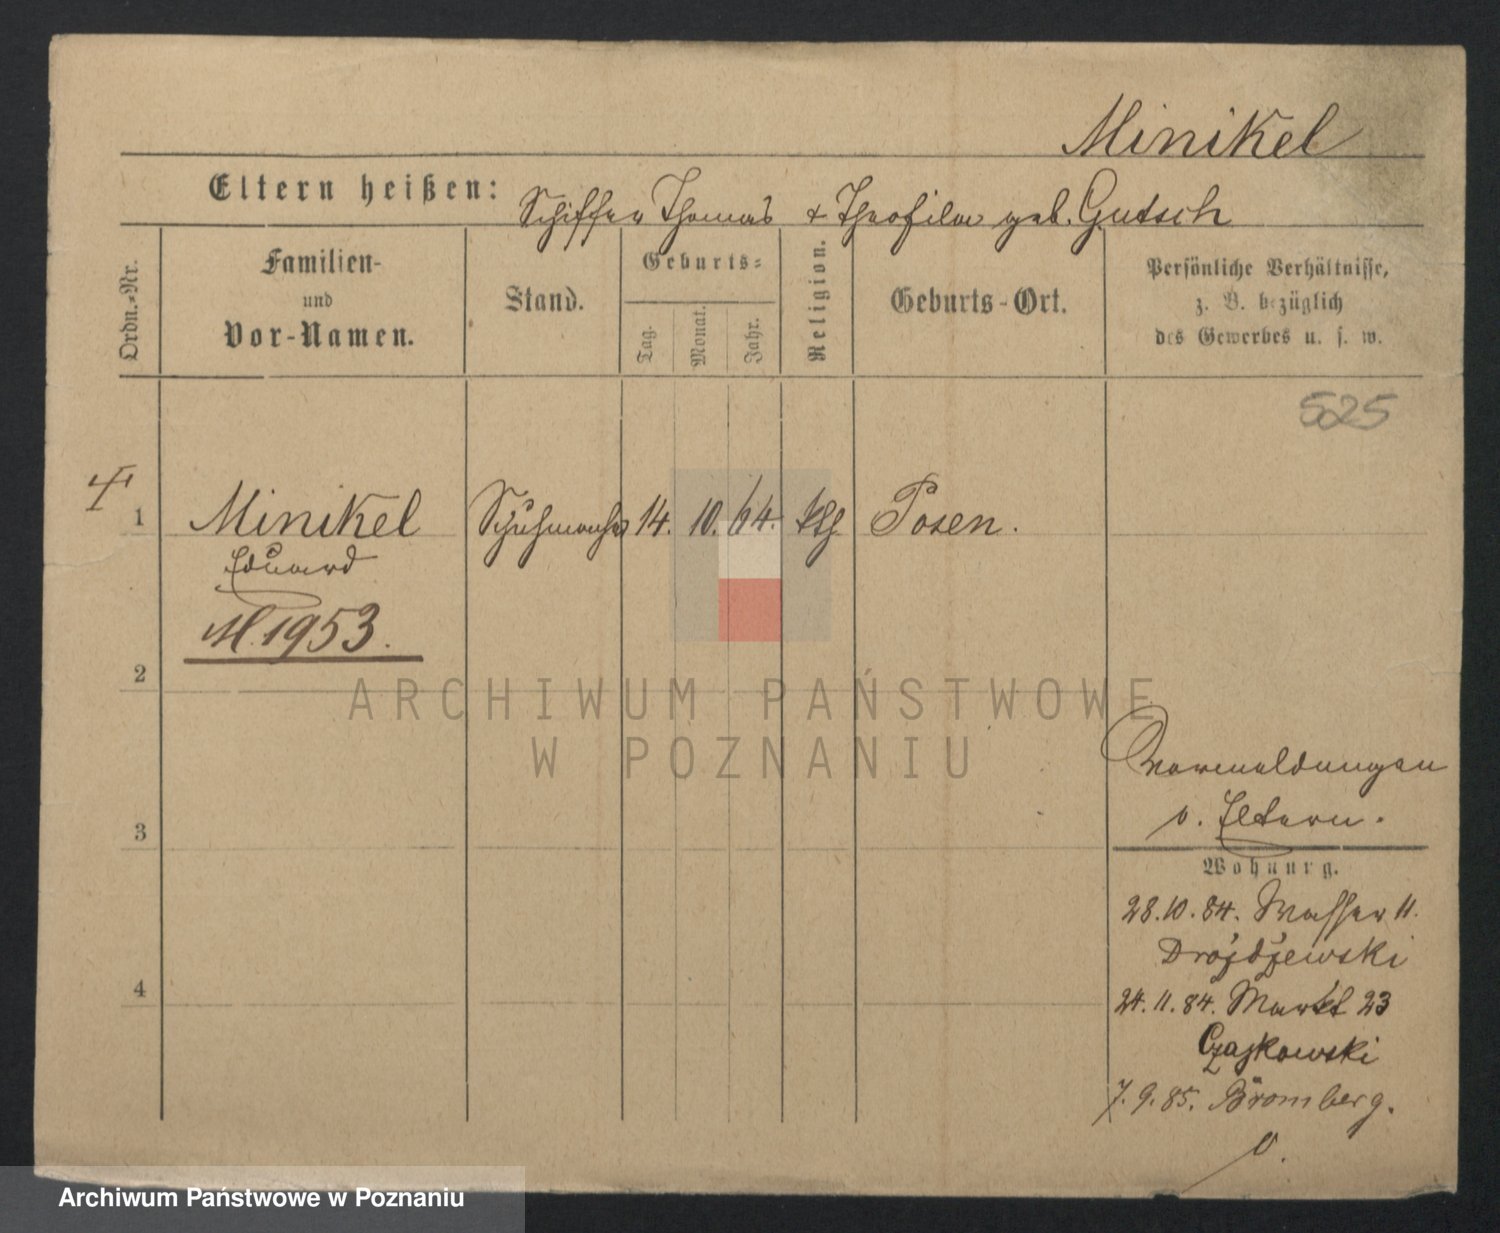 Minikel
Eltern heißen: Schiffer Thomas & Theofila geb. Gutsch
Ordn.-Nr.
Familien-
und
Vor-Namen.
Stand.
Geburts-
Tag.
Monat.
Jahr.
Religion.
Geburts-Ort.
Persönliche Verhältnisse,
z. B. bezüglich
des Gewerbes u. s. w.
525
1 Minikel Schuhmacher 14. 10. 64. kth Posen.
Eduard
M. 1953.
2
ARCHIWUM PAŃSTWOWE
W POZNANIU
Vormeldungen
b. Eltern.
3
Wohnung.
28.10.84. Wasser 11.
Drożdżewski
4
24.11.84. Markt 23
Czajkowski
7.9.85. Bromberg.
Archiwum Państwowe w Poznaniu